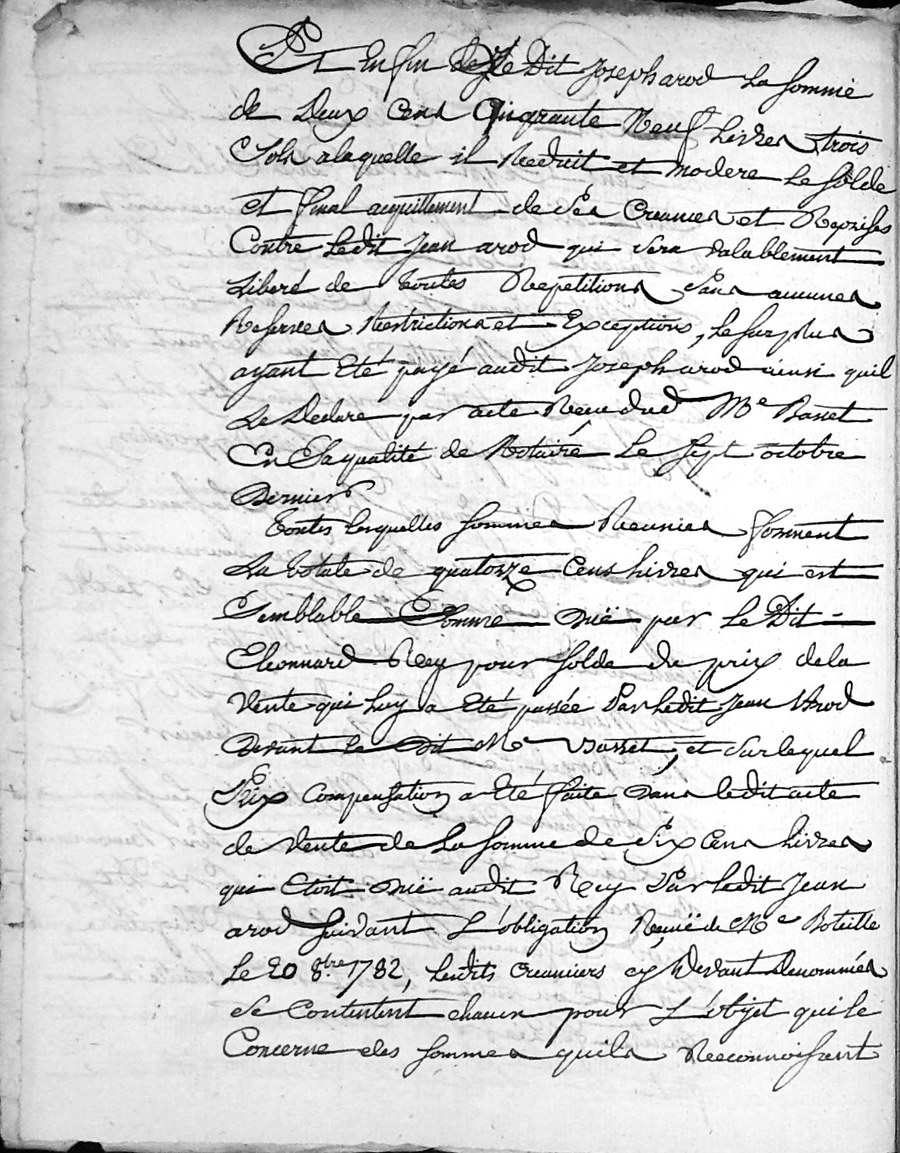 Et Enfin de Le Dit Joseph arod La somme
de Deux Cens Cinquante Neuf Livres trois
Sols a laquelle il Reduit et modere Le solde
et final acquittement de ses Creances et Reprises
Contre Ledit Jean arod qui sera valablement
Liberé de toutes Repetitions sans aucunes
Reserves Restrictions et Exceptions, Le surplus
ayant Eté payé audit Joseph arod ainsi quil
Le Declare par acte Receu dud Me Basset
En Sa qualité de Notaire Le sept octobre
Dernier
Toutes lesquelles sommes Reunies forment
La totale de quatorze Cens Livres qui est
Semblable Somme duë par Le Dit
Eleonnard Rey pour solde du prix de la
Vente qui Luy a Eté passée Par Ledit Jean Arod
devant le dit Me Basset, et sur lequel
Prix Compensation a Eté faite dans ledit acte
de Vente de La somme de Six Cens Livres
qui Etoit duë audit Rey Par Ledit Jean
arod suivant L'obligation Reçuë de Me Boteille
Le 20 8.bre 1782, Lesdits Creanciers cy Devant Denommés
se Contentent chacun pour L'objet qui le
Concerne des sommes quils Reconnoissent